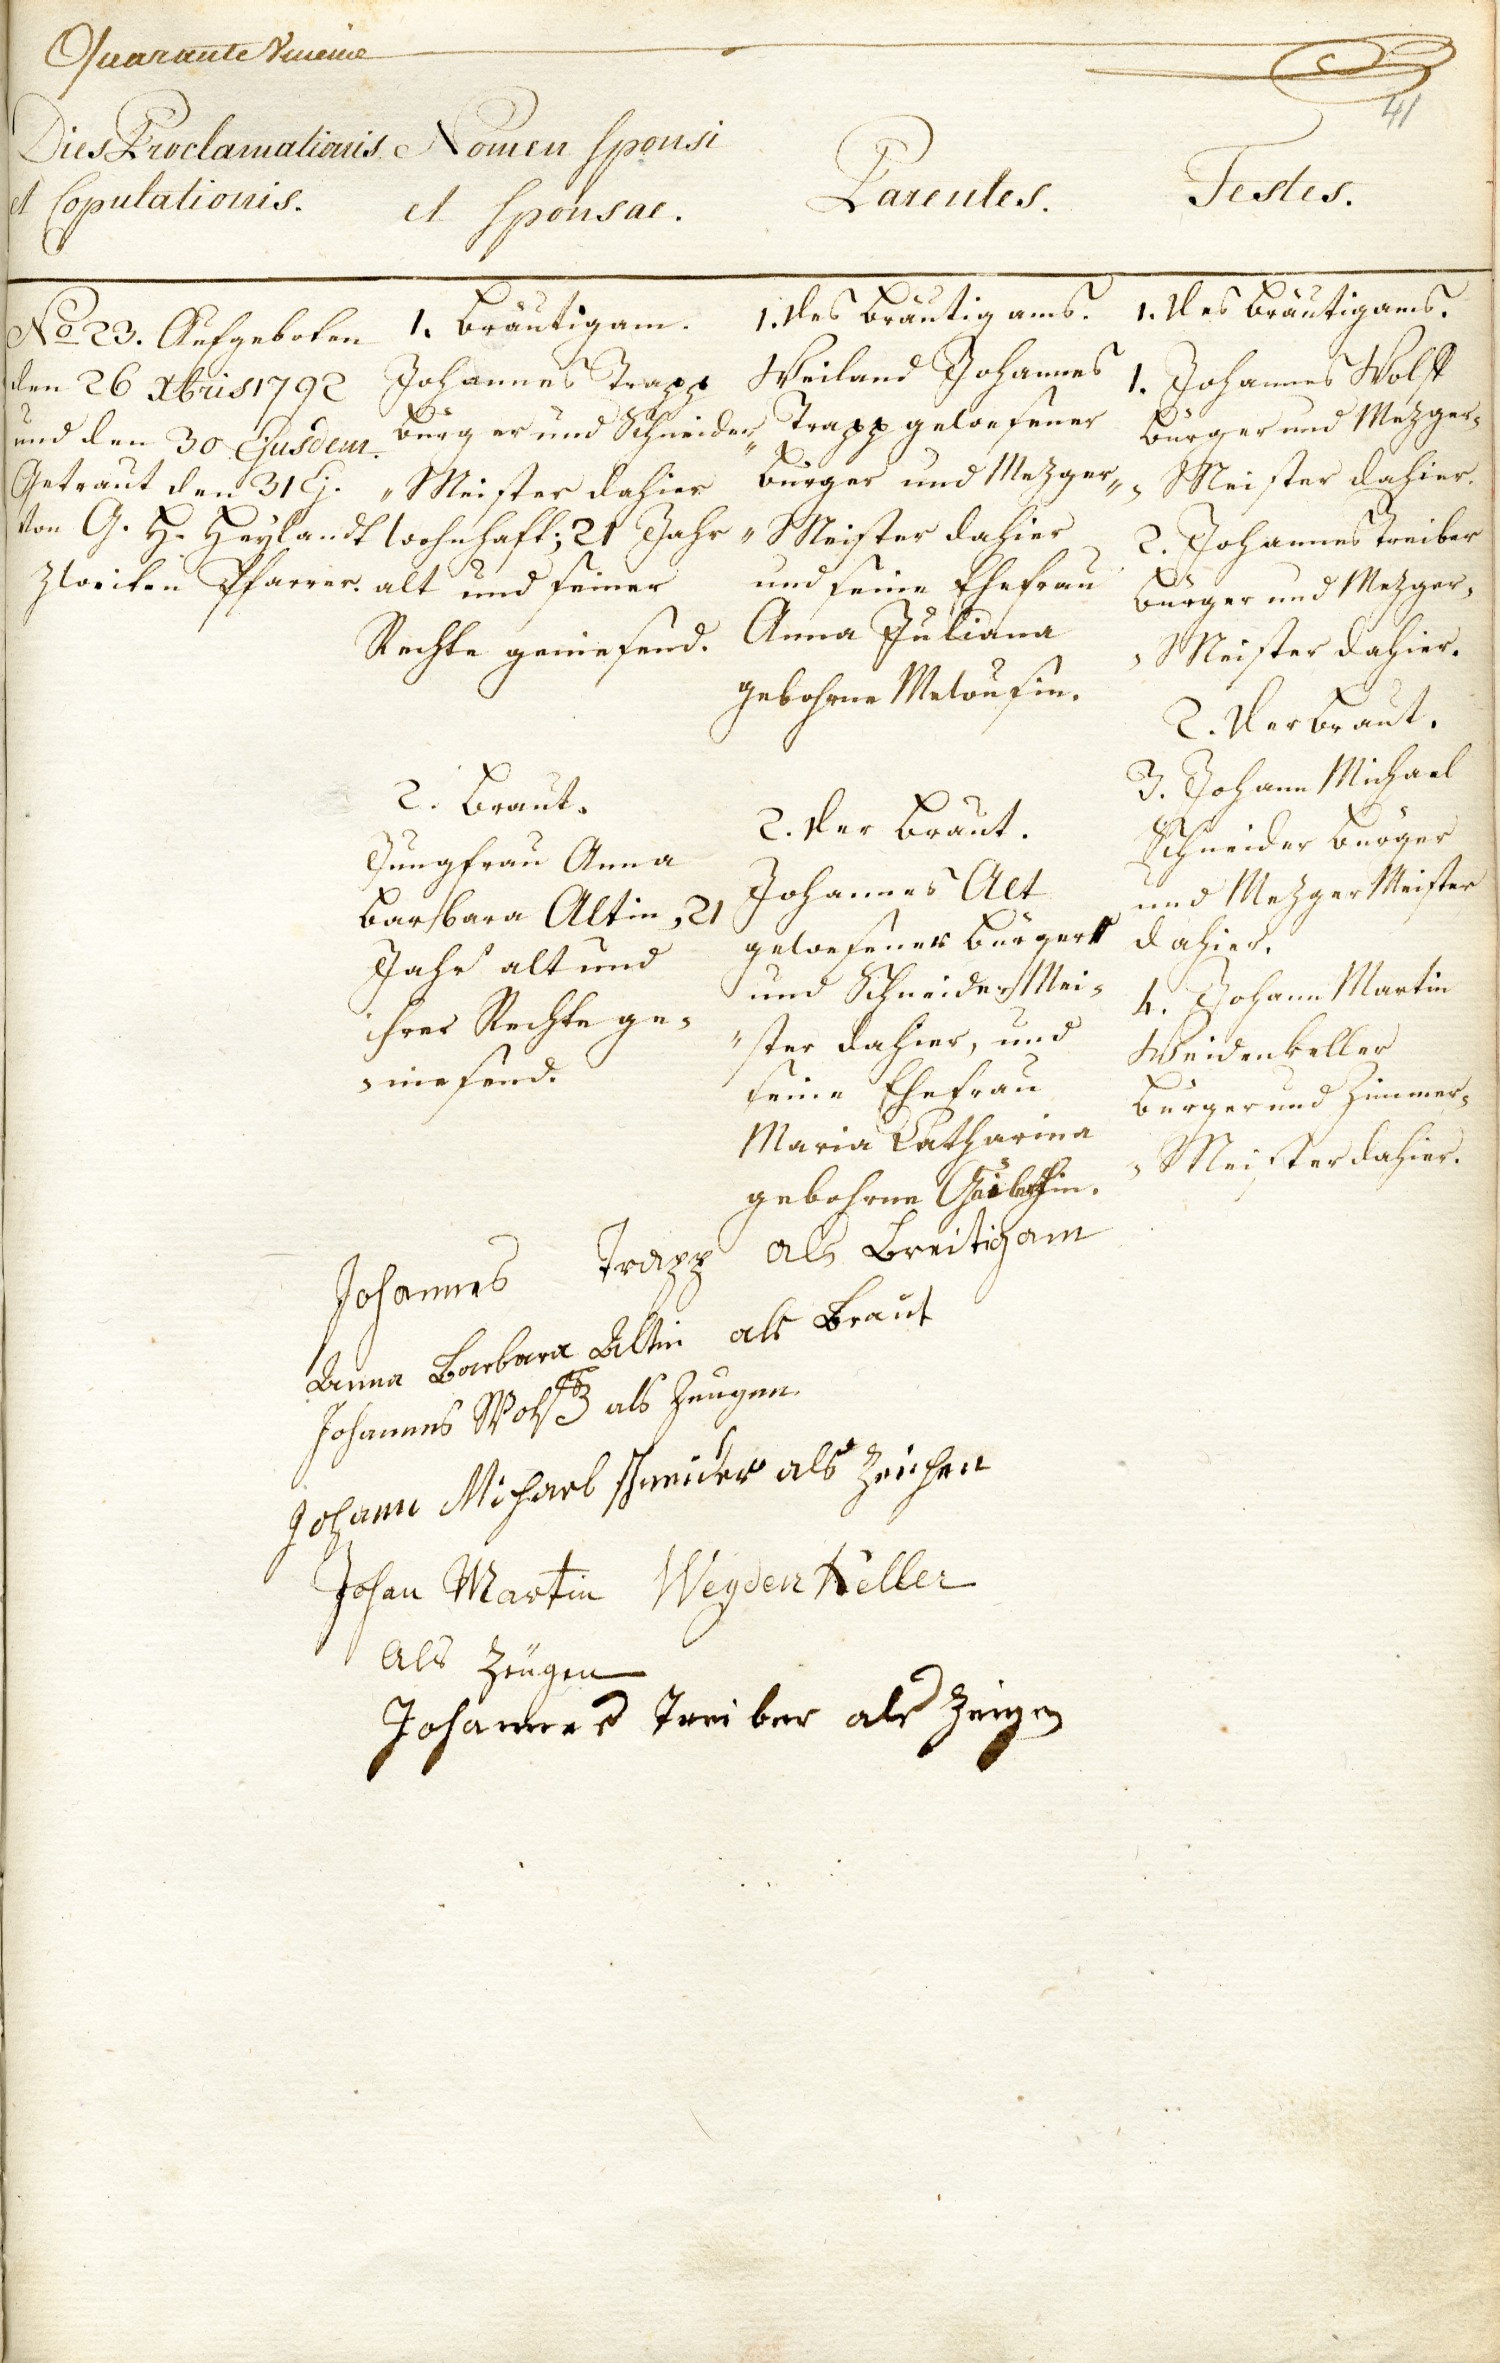 Quarante Unieme
41
Dies Proclamationis
et Copulationis.
Nomen Sponsi
et Sponsae.
Parentes.
Testes.
No 23. Aufgeboten
den 26 Xbris 1792
und den 30 Ejusdem.
Getraut den 31 Ej.
von G. H. Heylandt
zweiten Pfarrer.
1. Bräutigam.
Johannes Trapp
Bürger und Schneider„
„Meister dahier
wohnhaft; 21 Jahr
alt und seiner
Rechte geniesend.
2. Braut.
Jungfrau Anna
Barbara Altin, 21
Jahr alt und
ihrer Rechte ge=
=niesend.
1. des Bräutigams.
Weiland Johannes
Trapp gewesener
Bürger und Mezger„
„Meister dahier
und seine Ehefrau
Anna Juliana
gebohrne
2. der Braut.
Johannes Alt
gewesener Bürger
und Schneider Mei=
„ster dahier, und
seine Ehefrau
Maria Catharina
gebohrne
1. des Bräutigams.
1. Johannes Wolff
Bürger und Mezger=
=Meister dahier.
2. Johannes Treiber
Bürger und Mezger=
=Meister dahier.
2. der Braut.
3. Johann Michael
Schneider Bürger
und Mezger Meister
dahier.
4. Johann Martin
Weidenkeller
Bürger und Zimmer=
=Meister dahier.
Johannes Trapp als Breitigam
Anna Barbara Altin als Braut
Johannes Wolff als Zeugen
Johann Michael schneider als Zeichen
Johan Martin Weydenkeller
als Zeugen
Johannes Treiber als Zeigen